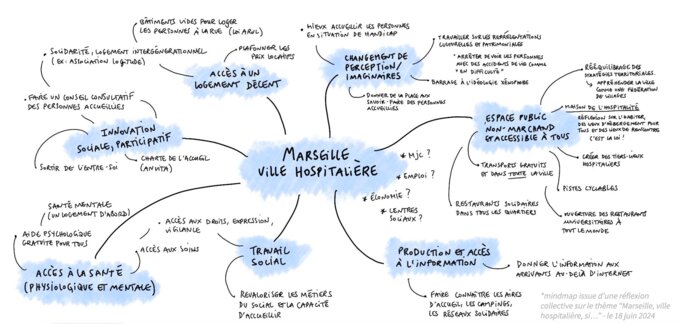 BÂTIMENTS VIDES POUR LOGER
LES PERSONNES À LA RUE (LOI ARUL)
SOLIDARITÉ, LOGEMENT INTERGÉNÉRATIONNEL
(EX: ASSOCIATION LOGITUDE)
PLAFONNER LES
PRIX LOCATIFS
ACCÈS À UN
LOGEMENT DÉCENT
FAIRE UN CONSEIL CONSULTATIF
DES PERSONNES ACCUEILLIES
INNOVATION
SOCIALE, PARTICIPATIF
SORTIR DE L'ENTRE-SOI
CHARTE DE L'ACCUEIL
(ANVITA)
MIEUX ACCUEILLIR LES PERSONNES
EN SITUATION DE HANDICAP
CHANGEMENT DE
PERCEPTION/
IMAGINAIRES
TRAVAILLER SUR LES REPRÉSENTATIONS
CULTURELLES ET PATRIMONIALES
ARRÊTER DE VOIR LES PERSONNES
AVEC DES ACCIDENTS DE VIE COMME
"EN DIFFICULTÉ"
BARRAGE À L'IDÉOLOGIE XÉNOPHOBE
DONNER DE LA PLACE AUX
SAVOIR-FAIRE DES PERSONNES
ACCUEILLIES
MARSEILLE
VILLE HOSPITALIÈRE
* MJC ?
* EMPLOI ?
* ÉCONOMIE ?
* CENTRES
SOCIAUX ?
ESPACE PUBLIC
NON-MARCHAND
ET ACCESSIBLE À TOUS
RÉÉQUILIBRAGE DES
STRATÉGIES TERRITORIALES.
APPRÉHENDER LA VILLE
COMME UNE FÉDÉRATION
DE VILLAGES
MAISON DE L'HOSPITALITÉ
RÉFLEXION SUR L'HABITER,
DES LIEUX D'HÉBERGEMENT POUR
TOUS ET DES LIEUX DE RENCONTRE
C'EST LA LOI !
CRÉER DES TIERS-LIEUX
HOSPITALIERS
PISTES CYCLABLES
OUVERTURE DES RESTAURANTS
UNIVERSITAIRES À
TOUT LE MONDE
TRANSPORTS GRATUITS
ET DANS TOUTE LA VILLE
RESTAURANTS SOLIDAIRES
DANS TOUS LES QUARTIERS
SANTÉ MENTALE
(UN LOGEMENT D'ABORD)
AIDE PSYCHOLOGIQUE
GRATUITE POUR TOUS
ACCÈS AUX SOINS
ACCÈS À LA SANTÉ
(PHYSIOLOGIQUE ET MENTALE)
ACCÈS AUX DROITS, EXPRESSION,
VIGILANCE
TRAVAIL
SOCIAL
REVALORISER LES MÉTIERS
DU SOCIAL ET LA CAPACITÉ
D'ACCUEILLIR
PRODUCTION ET ACCÈS
À L'INFORMATION
DONNER L'INFORMATION AUX
ARRIVANTS AU-DELÀ D'INTERNET
FAIRE CONNAÎTRE LES AIRES
D'ACCUEIL, LES CAMPINGS,
LES RÉSEAUX SOLIDAIRES
"mindmap issue d'une réflexion
collective sur le thème "Marseille, ville
hospitalière, si…" - le 18 juin 2024